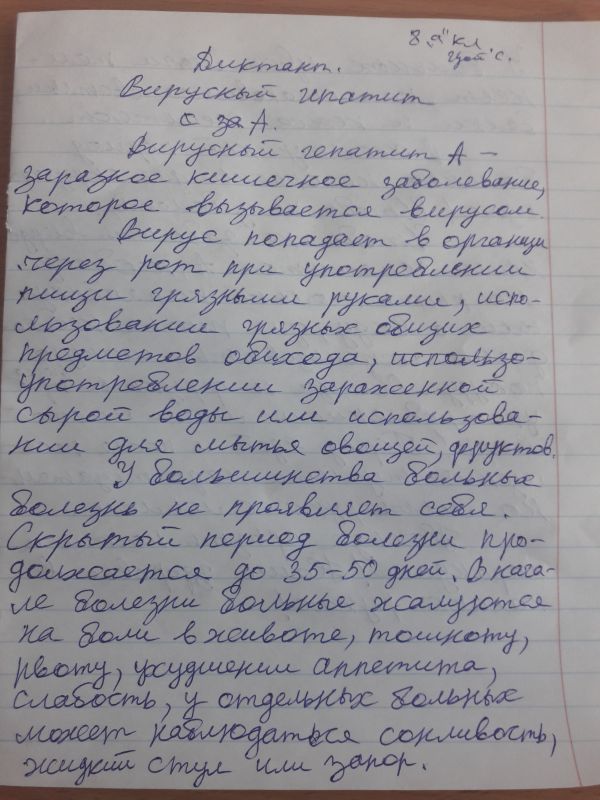 8 „а" кл
Диктант.
Вирусный гепатит
А.
Вирусный гепатит А –
заразное кишечное заболевание,
которое вызывается вирусом.
Вирус попадает в организм
через рот при употреблении
пищи грязными руками, испо-
льзовании грязных общих
предметов обихода, использо-
употреблении зараженной
сырой воды или использова-
нии для мытья овощей, фруктов.
У большинства больных
болезнь не проявляет себя.
Скрытый период болезни про-
должается до 35-50 дней. В нача-
ле болезни больные жалуются
на боли в животе, тошноту,
рвоту, ухудшении аппетита,
слабость, у отдельных больных
может наблюдаться сонливость,
жидкий стул или запор.